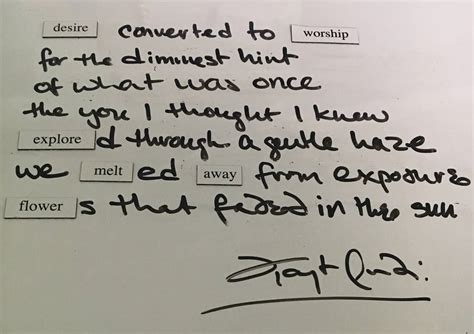 desire converted to worship
for the dimmest hint
of what was once
the you I thought I knew
explored through a gentle haze
we melted away from exposure
flowers that faded in the sun